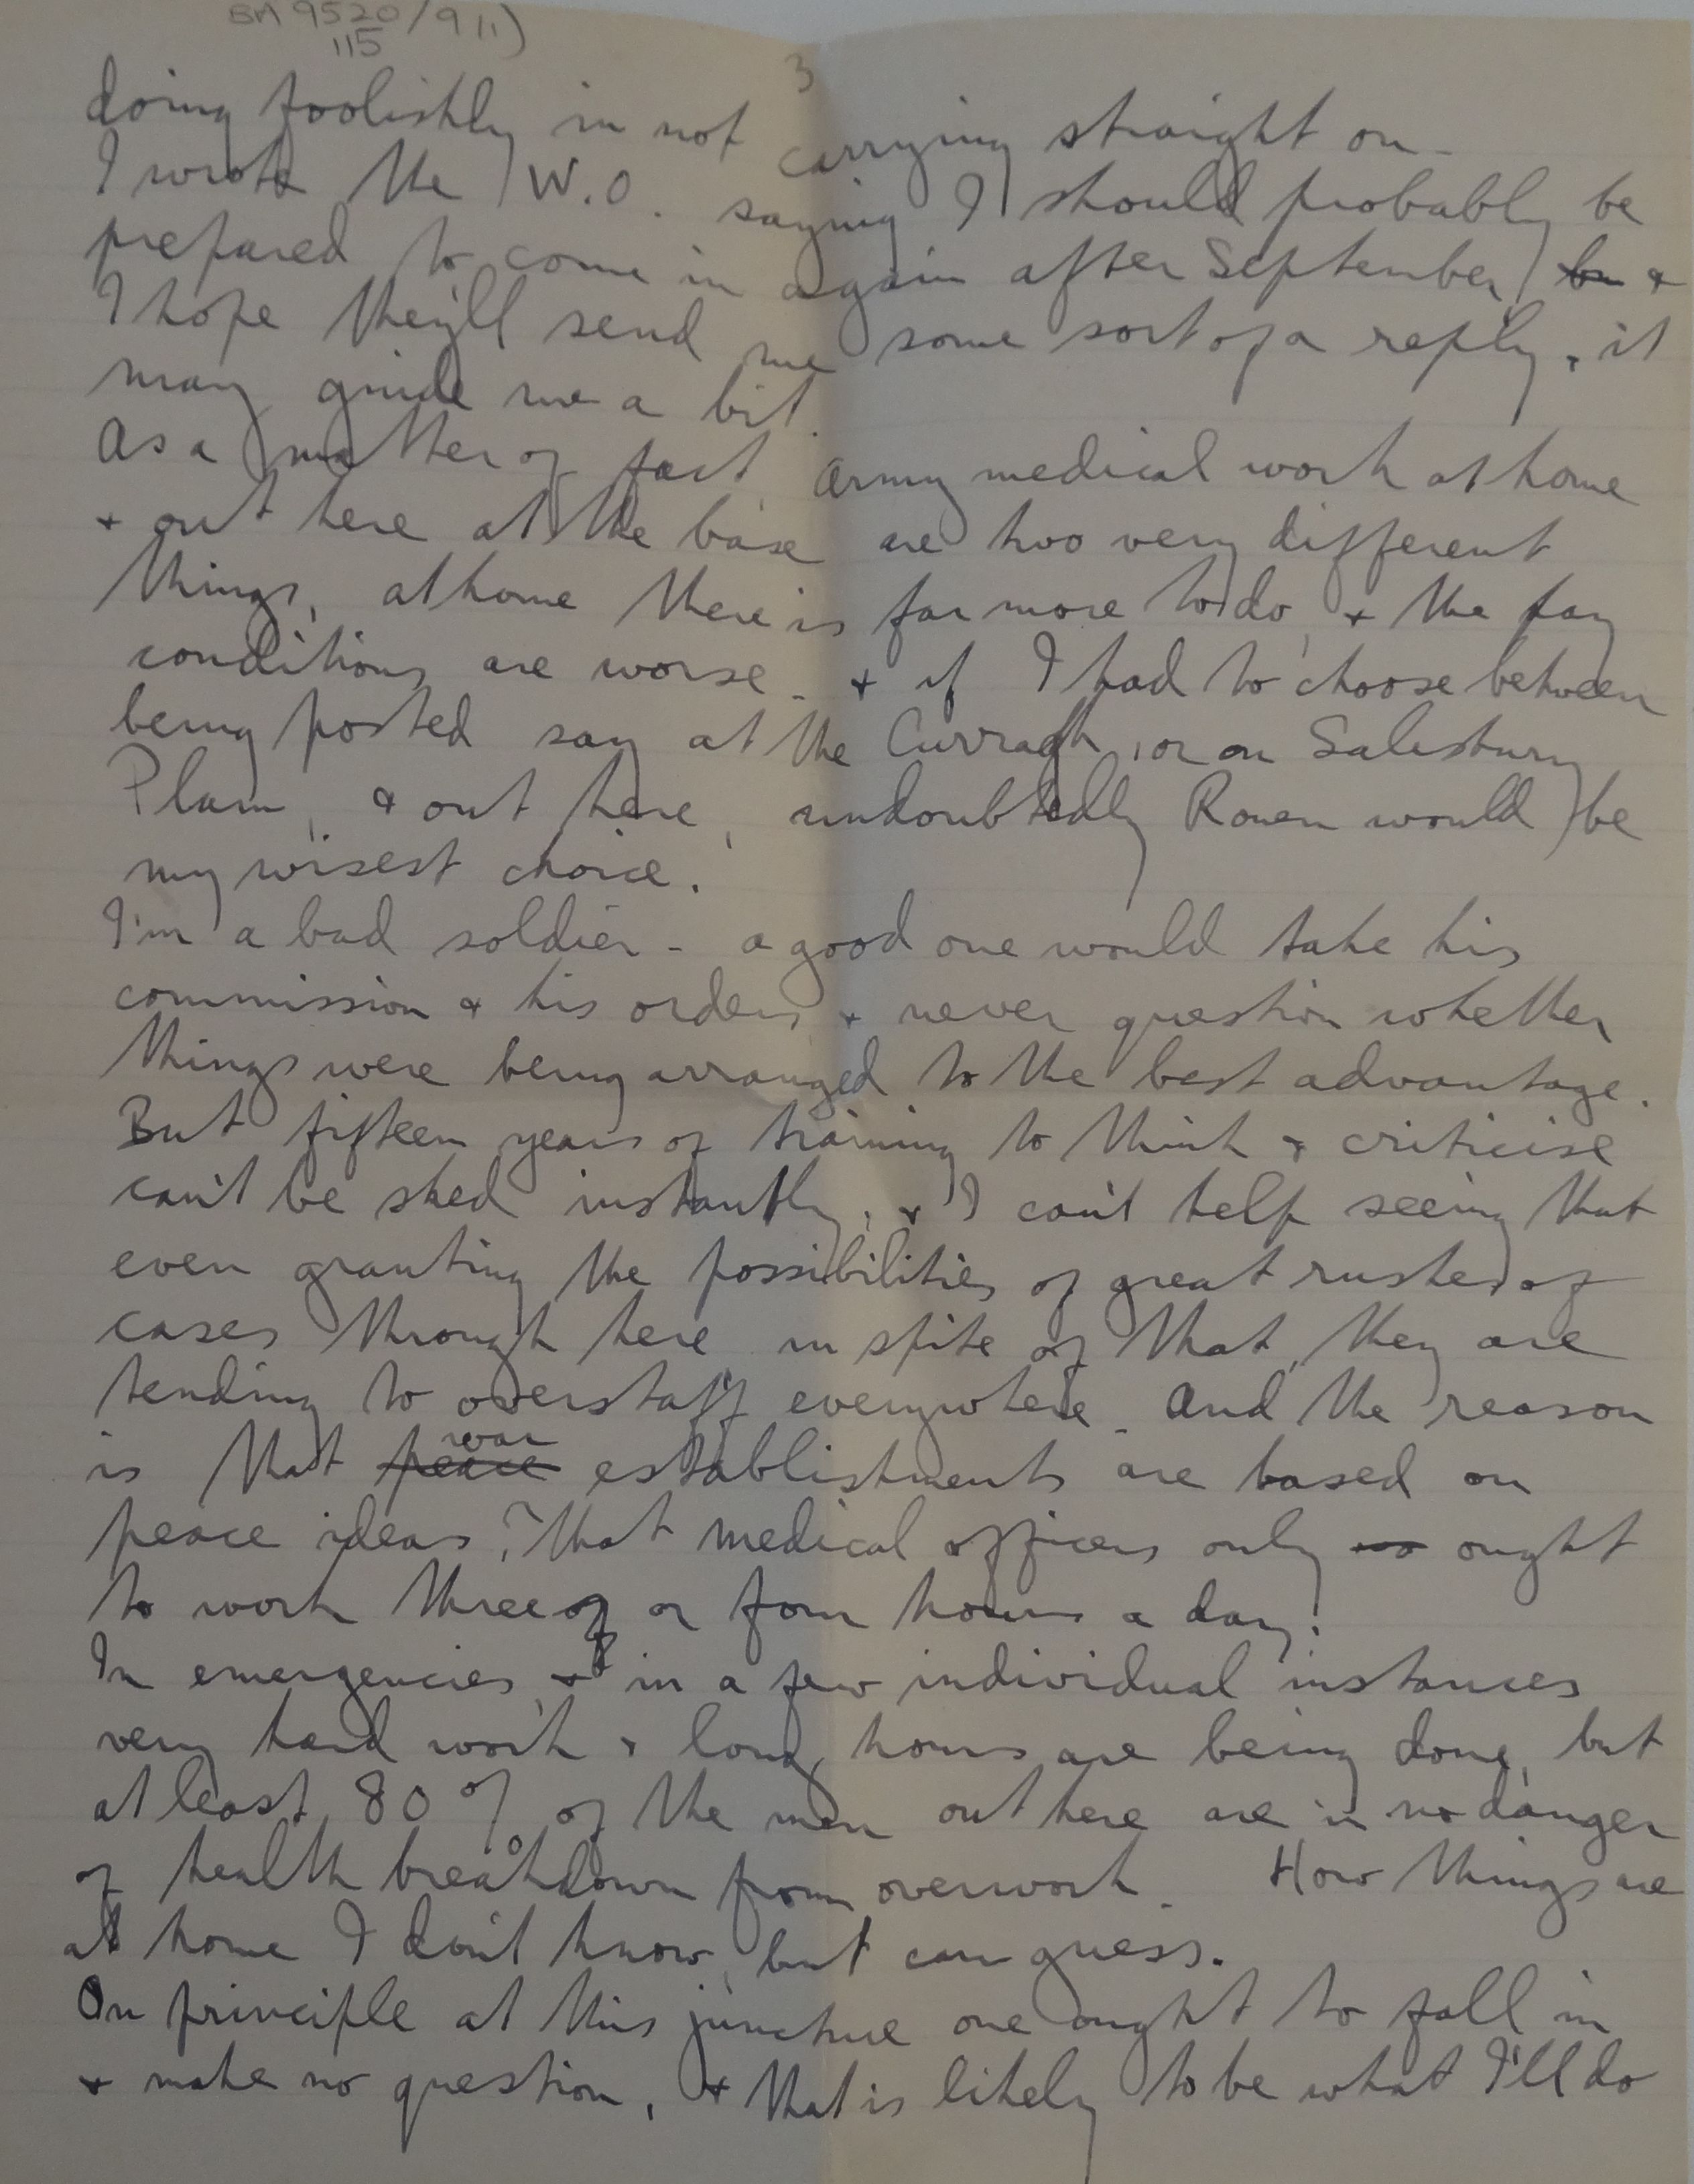 BA 9520/9(1)
115
3
doing foolishly in not carrying straight on -
I wrote the W.O. saying I should probably be
prepared to come in again after September, bu &
I hope they'll send me some sort of a reply, it
may guide me a bit.
As a matter of fact, army medical work at home
+ out here at the base are two very different
things, at home there is far more to do, + the pay
conditions are worse - + if I had to choose between
being posted say at the Curragh, or on Salisbury
Plain, & out here, undoubtedly Rouen would be
my wisest choice.
I'm a bad soldier - a good one would take his
commission & his orders + never question whether
things were being arranged to the best advantage.
But fifteen years of training to think + criticise
can't be shed instantly, + I can't help seeing that
even granting the possibilities of great rushes of
cases through here in spite of that, they are
tending to overstaff everywhere. And the reason
war
is that peace establishments are based on
peace ideas, that medical officers only ought
to work three or four hours a day.
In emergencies, + in a few individual instances
very hard work + long hours are being done, but
at least 80% of the men out here are in no danger
of health breakdown from overwork. How things are
at home I don't know, but can guess.
On principle at this juncture one ought to fall in
+ make no question, + that is likely to be what I'll do